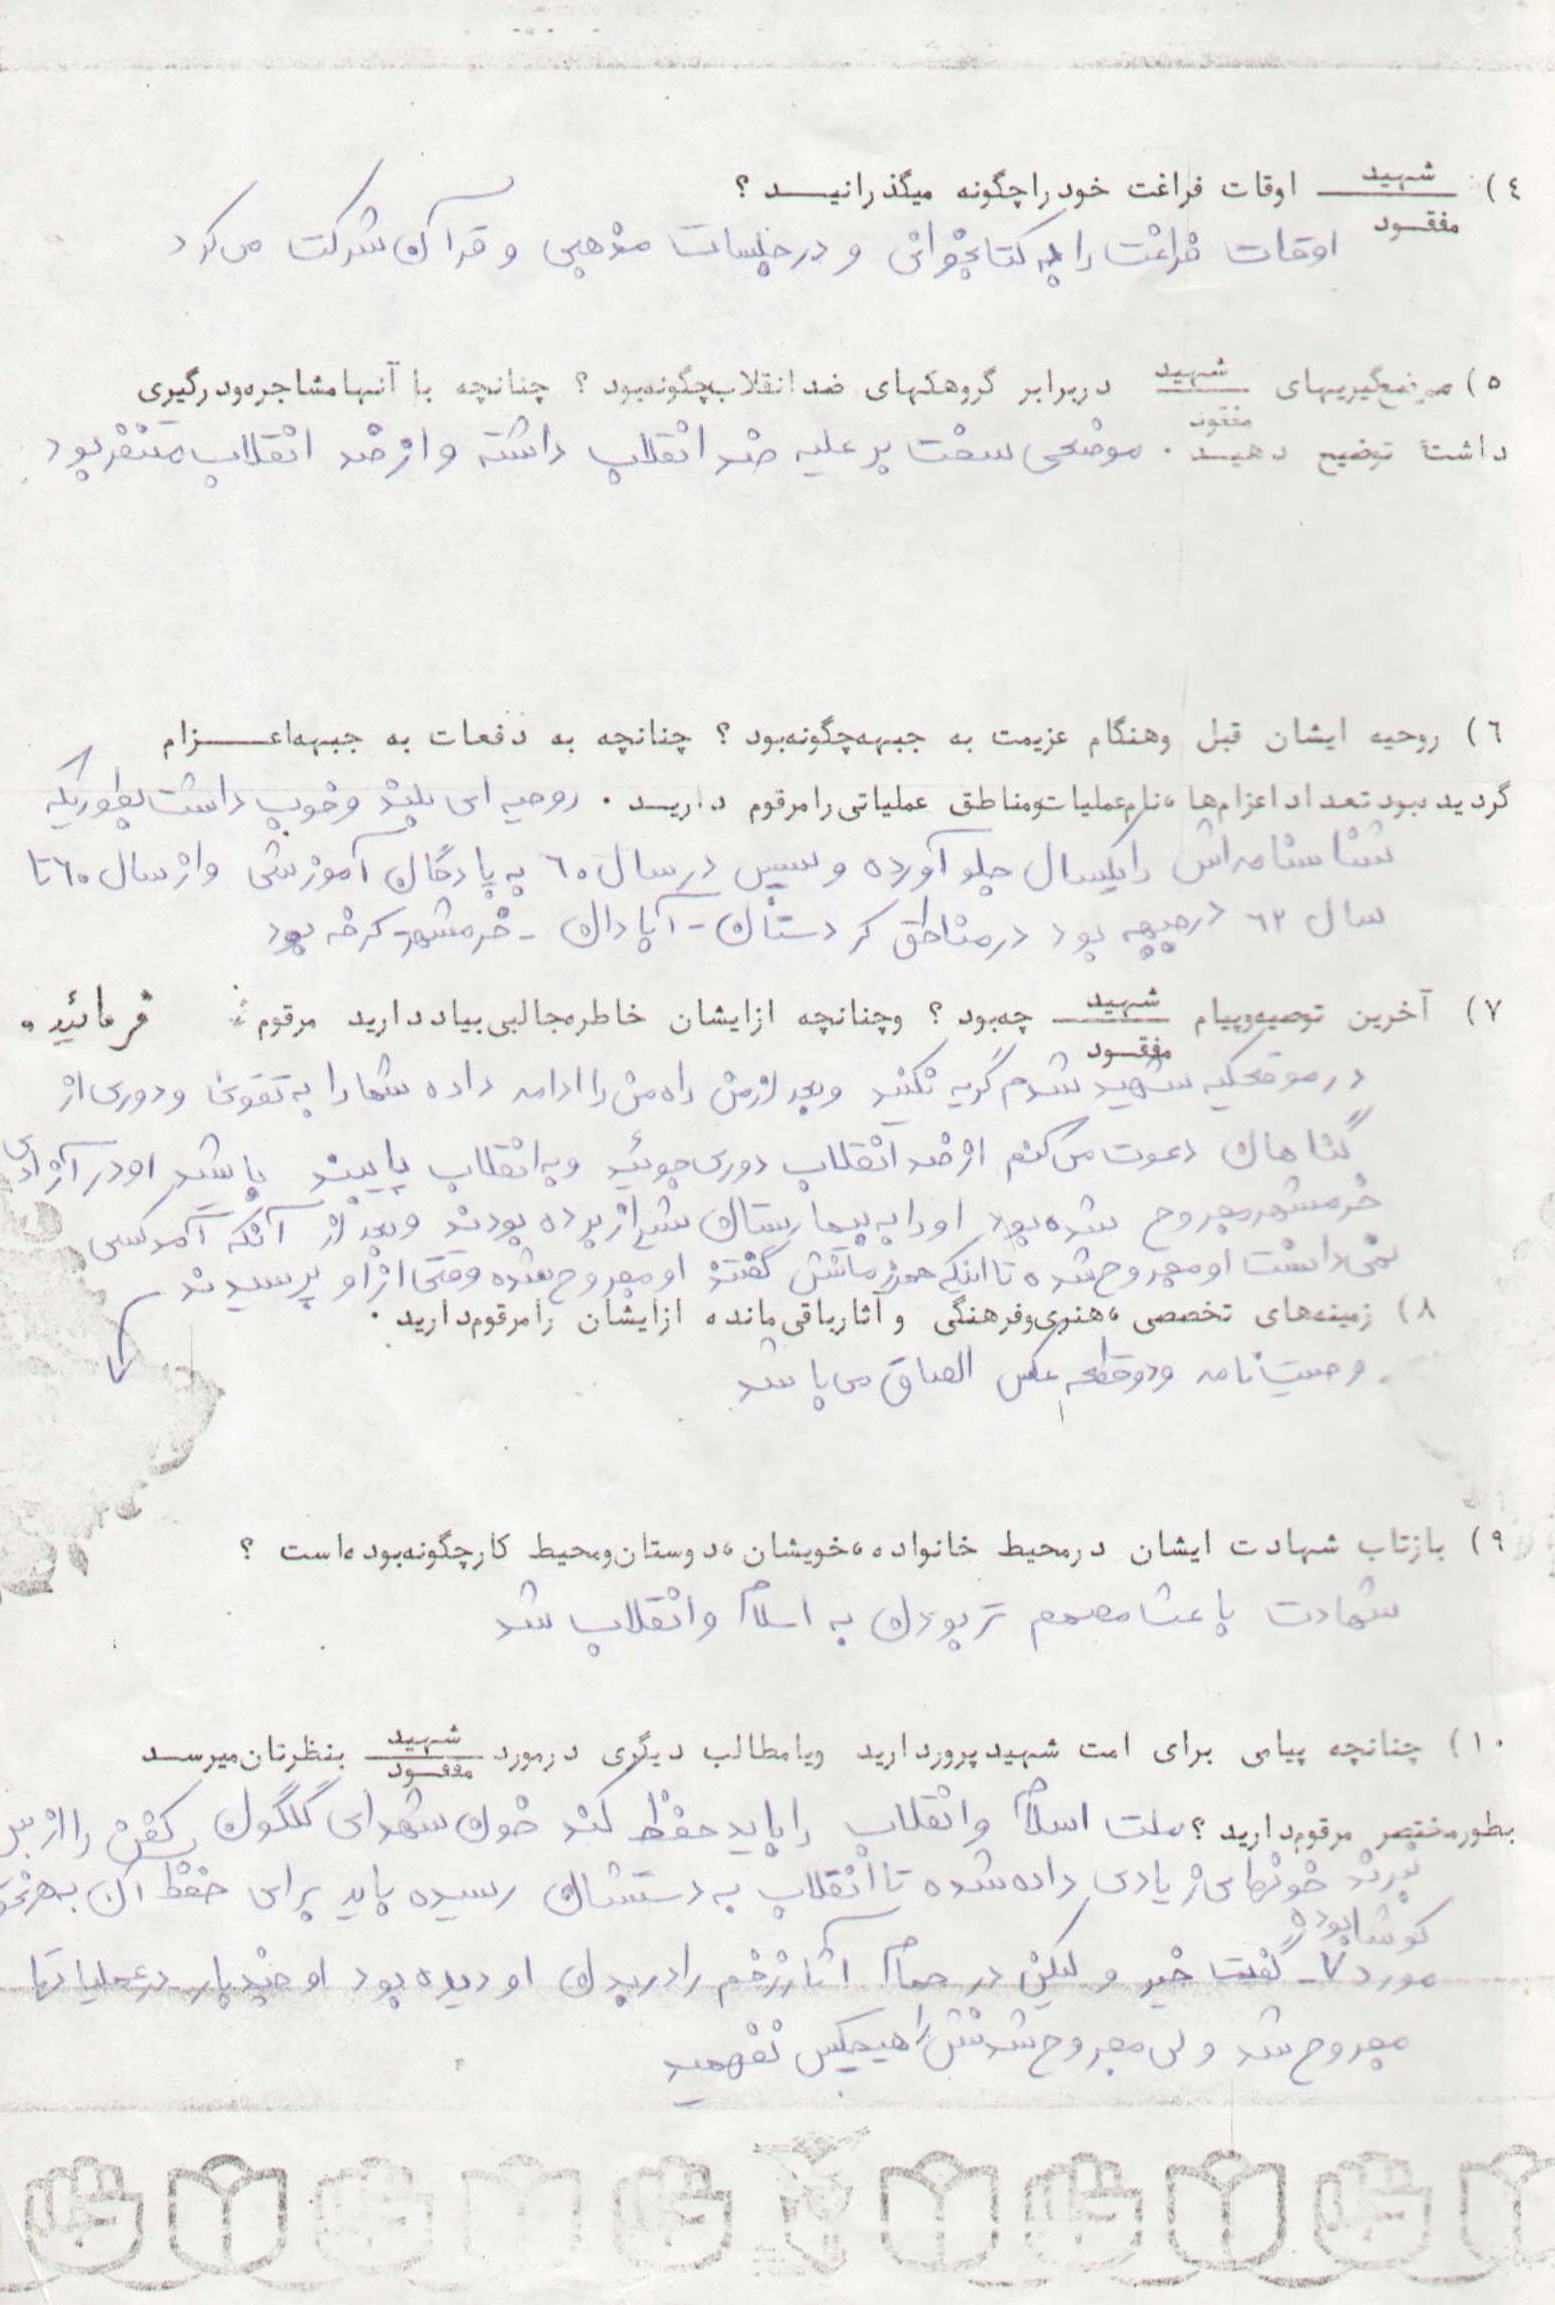 ٤) شهید
مفقود اوقات فراغت خود را چگونه میگذرانید ؟
اوقات فراغت را به کتابخوانی و در جلسات مذهبی و قرآن شرکت می‌کرد
٥) موضعگیریهای شهید
مفقود دربرابر گروهکهای ضد انقلاب چگونه بود ؟ چنانچه با آنها مشاجره و درگیری
داشتهٔ توضیح دهید . موضعی سخت بر علیه ضد انقلاب داشته و از ضد انقلاب متنفر بود
٦) روحیه ایشان قبل وهنگام عزیمت به جبهه چگونه بود ؟ چنانچه به دفعات به جبهه اعزام
گردیده بود تعداد اعزام ها ، نام عملیات و مناطق عملیاتی را مرقوم دارید . روحیه ای بلند و خوب داشت بطوریکه
شناسنامه اش را یکسال جلو آورده و سپس در سال ٦٠ به پادگان آموزشی و از سال ٦٠ تا
سال ٦٢ درجبهه بود در مناطق کردستان - آبادان - خرمشهر - کرخه بود
٧) آخرین توصیه و پیام شهید
مفقود چه بود ؟ و چنانچه از ایشان خاطره جالبی بیاد دارید مرقوم فرمائید .
در موقعیکه شهید شدم گریه نکنید و بعد از من راه من را ادامه داده شما را به تقوی و دوری از
گناهان دعوت می کنم از ضد انقلاب دوری جوئید و به انقلاب پایبند باشید او در آزادی
خرمشهر مجروح شده بود او را به بیمارستان شیراز برده بودند و بعد از آنکه آمد کسی
نمی دانست او مجروح شده تا اینکه همرزمانش گفتند او مجروح شده وقتی از او پرسیدند
٨) زمینه های تخصصی ، هنری و فرهنگی و آثار باقی مانده از ایشان را مرقوم دارید .
وصیت نامه و دو قطعه عکس الصاق می باشد
٩) بازتاب شهادت ایشان در محیط خانواده ، خویشان ، دوستان و محیط کار چگونه بوده است ؟
شهادت باعث مصمم تر بودن به اسلام و انقلاب شد
١٠) چنانچه پیامی برای امت شهید پرور دارید و یا مطالب دیگری در مورد شهید
مفقود بنظرتان میرسد
بطور مختصر مرقوم دارید ؟ ملت اسلام و انقلاب را باید حفظ کند خون شهدای گلگون کفن را از بین
نبرند خونهای زیادی داده شده تا انقلاب به دستشان رسیده باید برای حفظ آن به هر نحو
کوشا بوده
مورد ٧- گفت خیر و لیکن در حمام آثار زخم را در بدن او دیده بود او چند بار در عملیاتها
مجروح شد ولی مجروح شدنش را هیچکس نفهمید